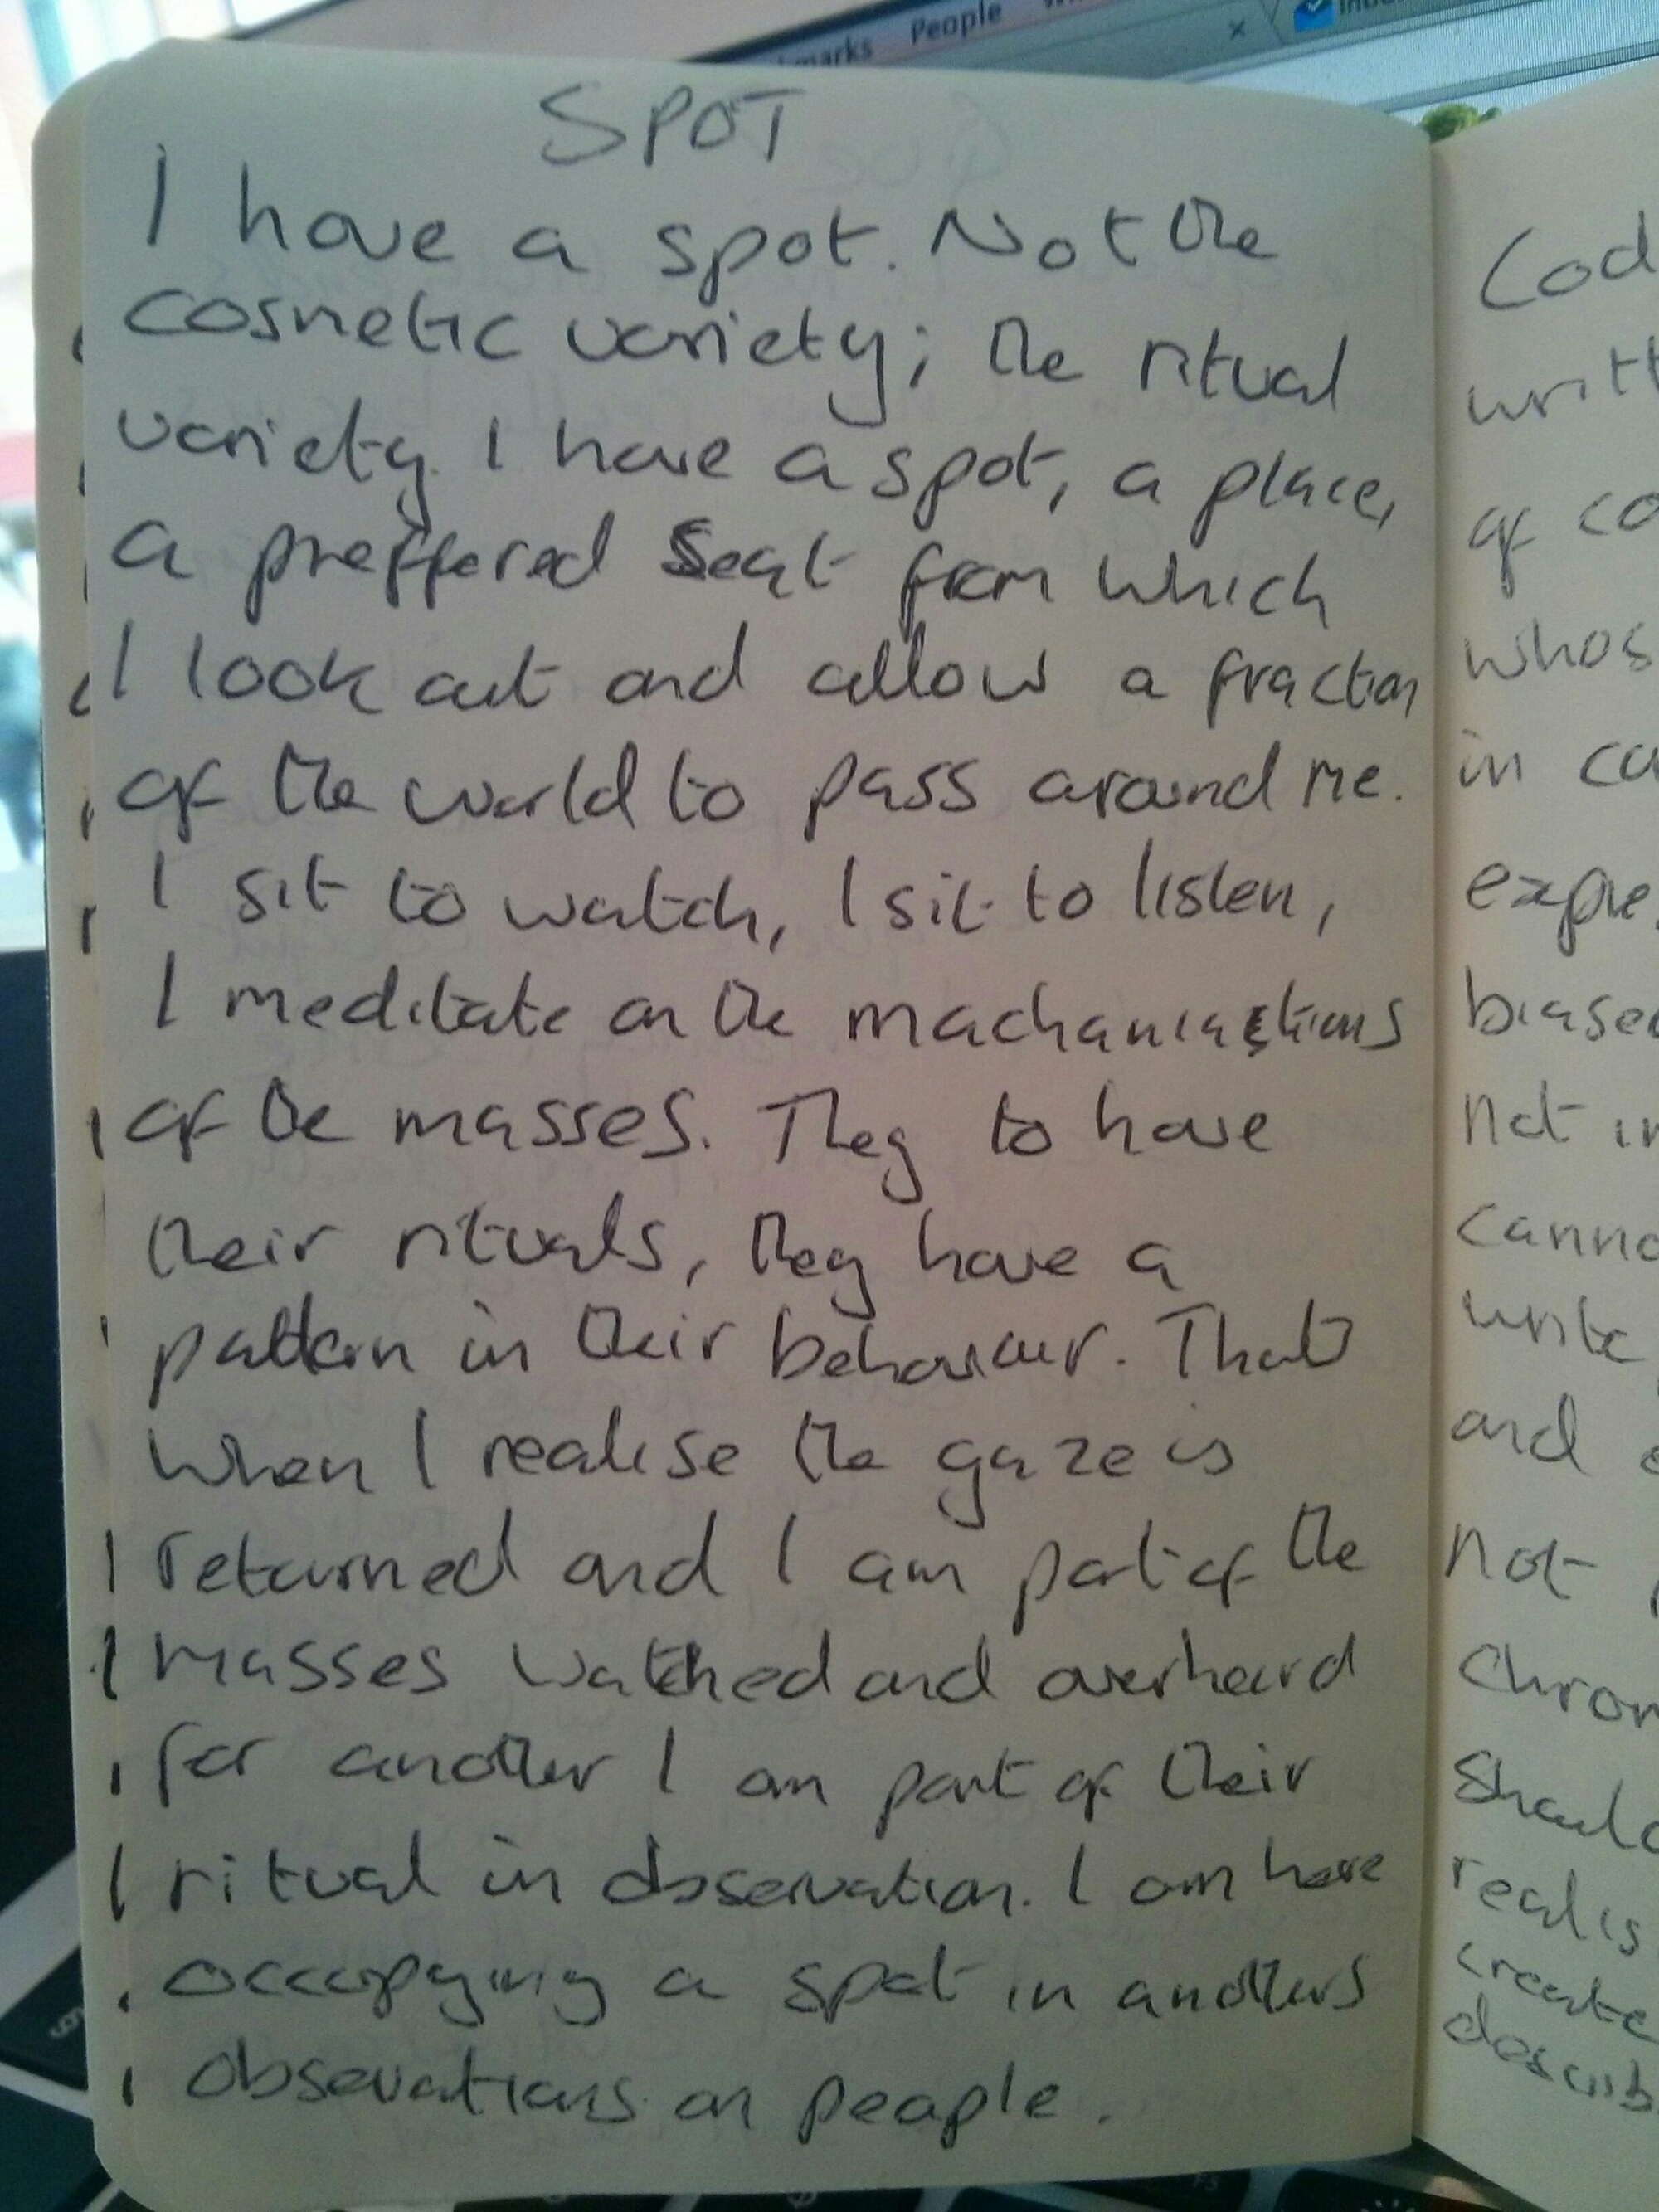 People
SPOT
I have a spot. Not the
cosmetic variety; the ritual
variety. I have a spot, a place,
a preffered seat from which
I look out and allow a fraction
of the world to pass around me.
I sit to watch, I sit to listen,
I meditate on the
of the masses. They to have
their rituals, they have a
pattern in their behaviour. Thats
when I realise the gaze is
returned and I am part of the
masses watched and overheard
for another I am part of their
ritual in observation. I am here
occupying a spot in anothers
observations on people.
Cod
writt
of co
whos
in co
expre
biased
not in
canno
write
and
not
chron
should
realis
create
describ